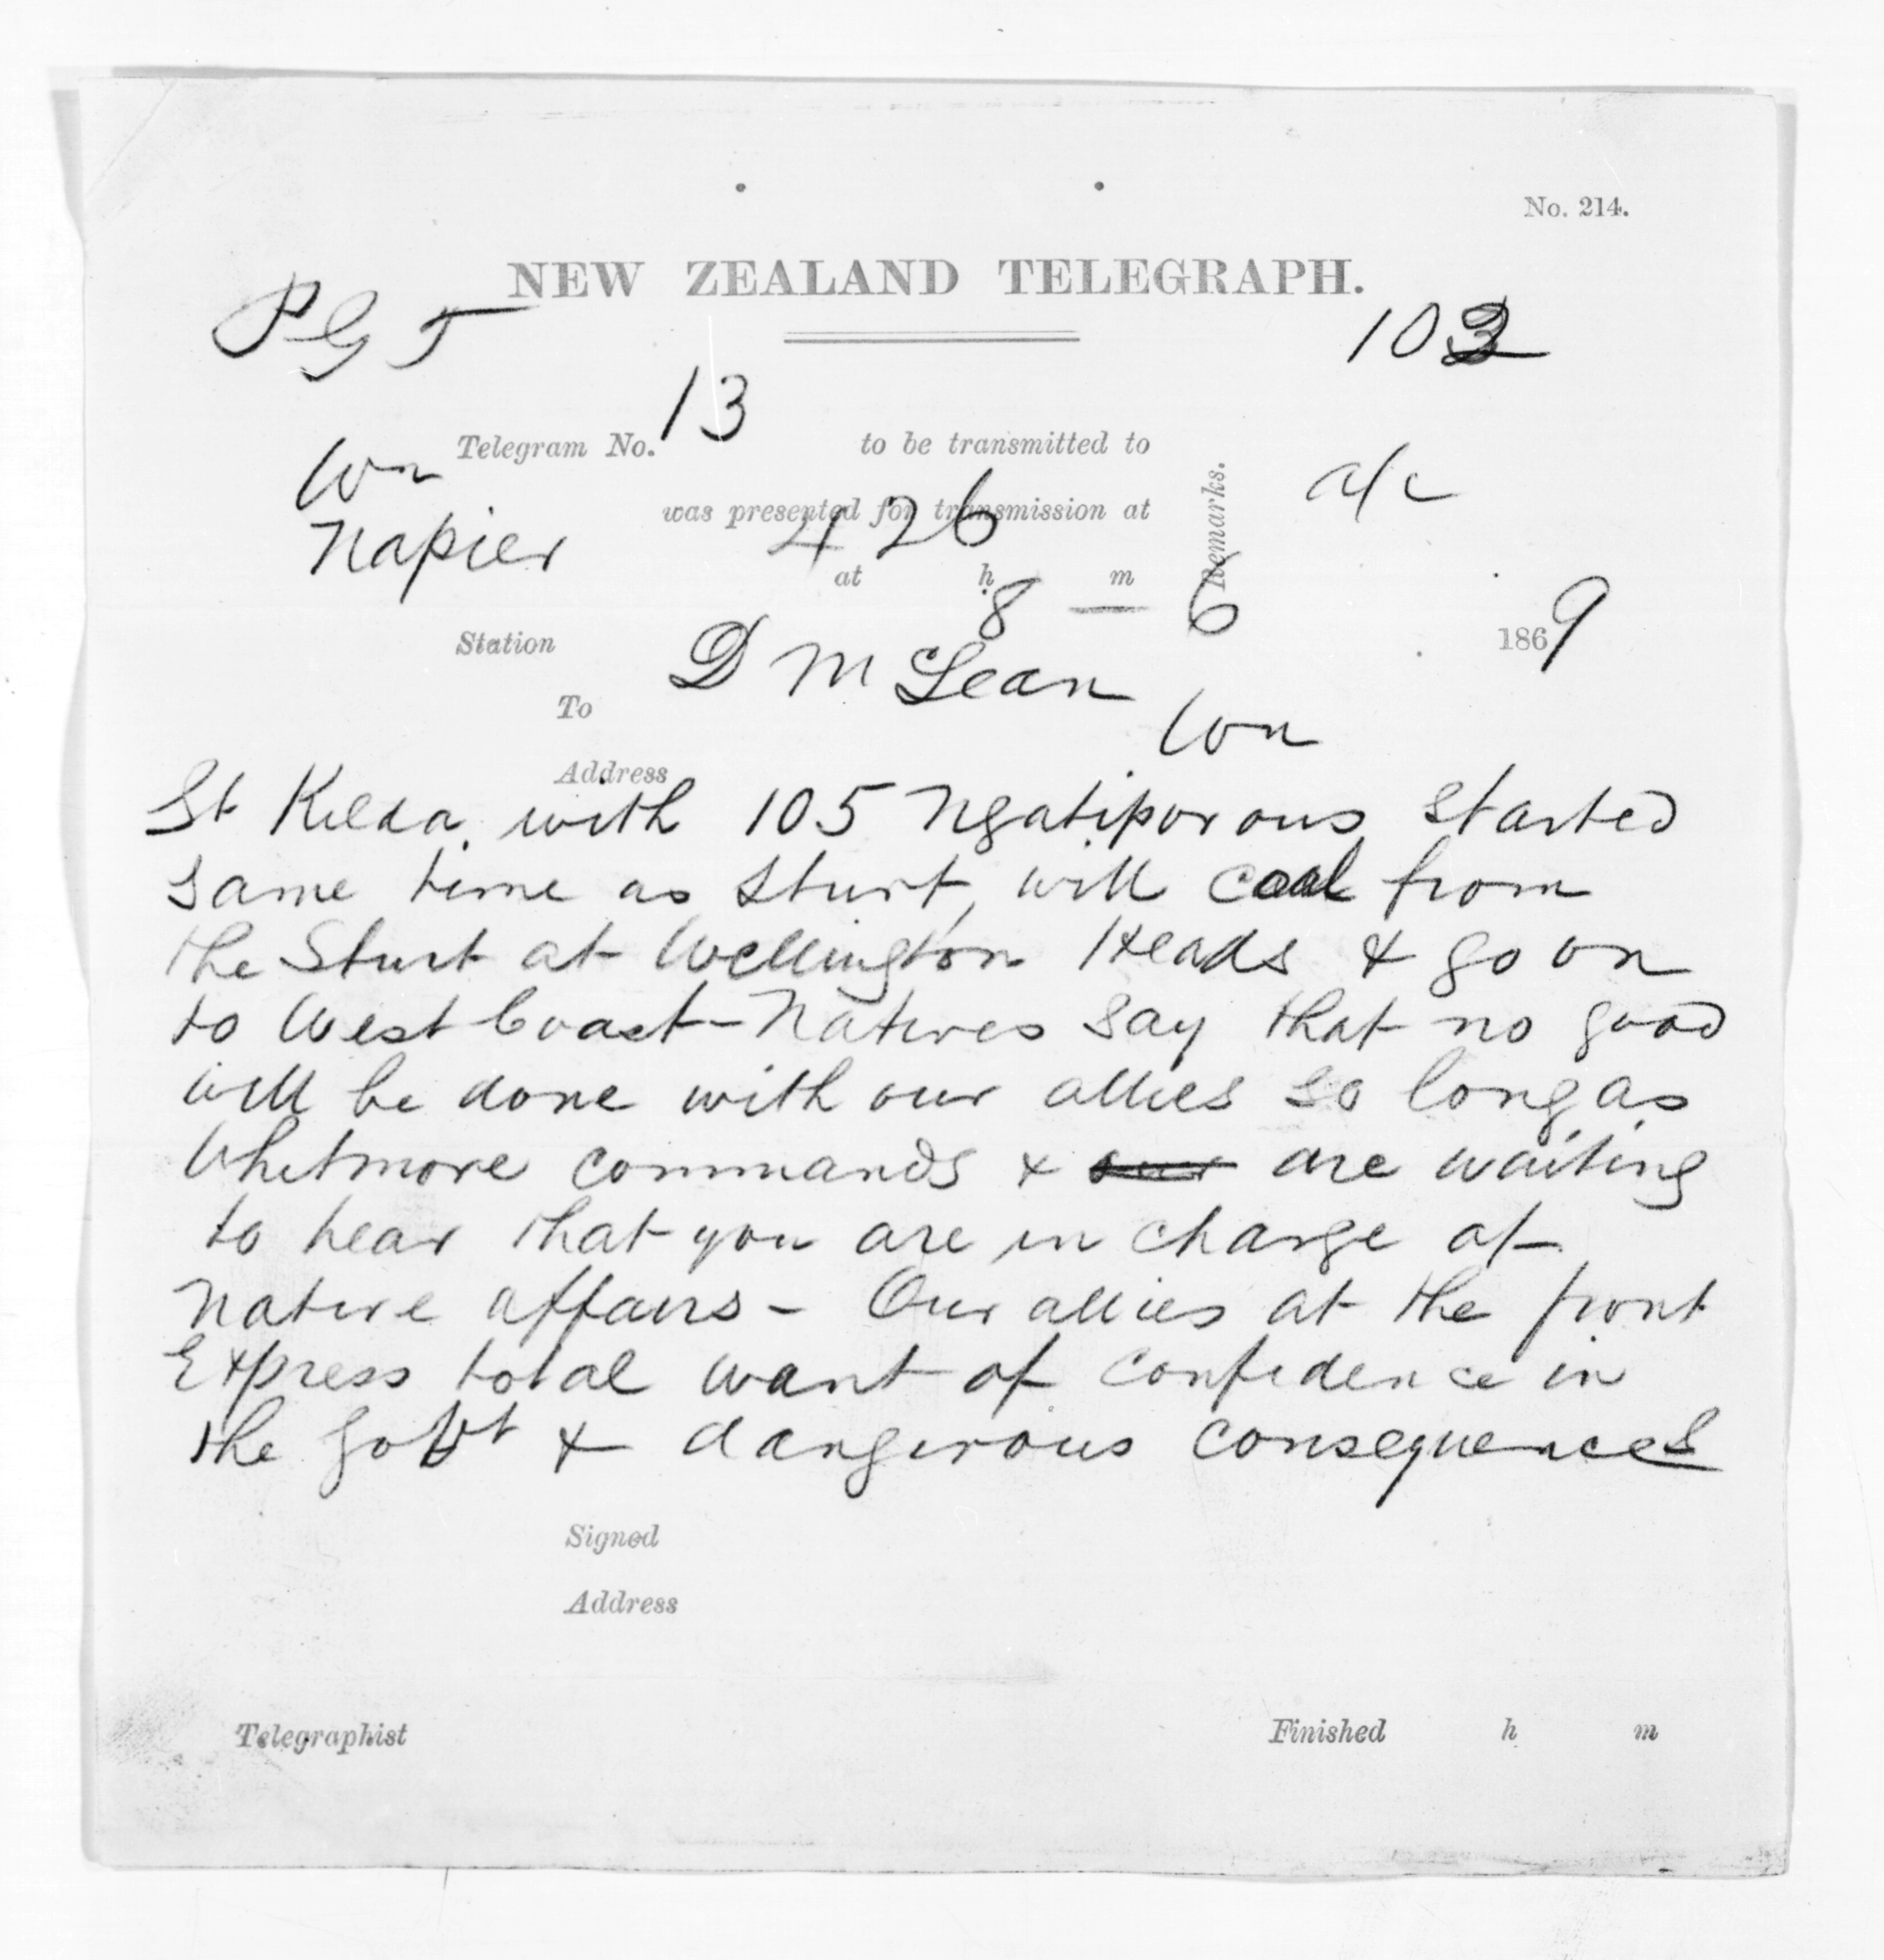 No. 214.
NEW ZEALAND TELEGRAPH.
P G T
103
Telegram No. 13 to be transmitted to
Wn
a/c
was presented for transmission at
Napier
4 26
Remarks.
at h m
8 — 6 1869
Station
To D McLean
Wn
Address
St Kilda with 105 Ngatiporous started
same time as Sturt, will coal from
the Sturt at Wellington Heads & go on
to West Coast - Natives say that no good
will be done with our allies so long as
Whitmore commands & our are waiting
to hear that you are in charge of
Native affairs - Our allies at the front
Express total want of confidence in
the Govt & dangerous consequences
Signed
Address
Telegraphist Finished h m